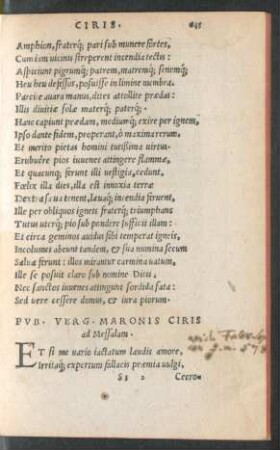 CIRIS.
Amphion, fraterq; pari sub munere fortes,
Cum iam uicinu strperent incendia tectis:
Aspiciunt pigrumq; patrem, matremq; senemq;
Heu heu defessos, posuisse in limine membra.
Parcite auara manus, dites attollite prædas:
Illis diuitiæ solæ materq; paterq;.
Hanc capiunt prædam, mediumq; exire per ignem,
Ipso dante fidem, properant, ô maxima rerum,
Et merito pietas homini tutissima uirtus.
Erubuêre pios iuuenes attingere flammæ,
Et quacunq; ferunt illi uestigia, cedunt.
Fœlix illa dies, illa est innoxia terræ
Dextra sæua tenent, læuaq; incendia feruent,
Ille per obliquos igneis fratreq; triumphans
Tutus uterq; pio sub pondere sufficit illam:
Et circa geminos auidus sibi temperat igneis,
Incolumes abeunt tandem, & sua numina secum
Salua ferunt: illos mirantur carmina uatum,
Ille se posuit claro sub nomine Ditis,
Nec sanctos iuuenes attingunt sordida fata:
Sed uere cessere domus, & iura piorum.
PVB. VERG. MARONIS CIRIS
ad Messalam.
Et si me uario iactatum laudis amore,
Irritaq; expertum fallacis præmia uulgi,
Cecro-